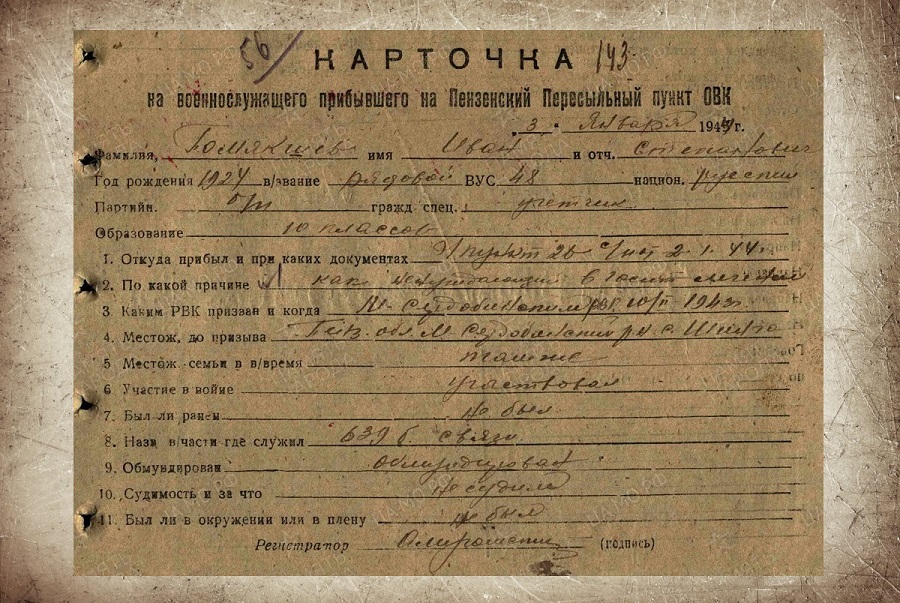 56
КАРТОЧКА 143
на военнослужащего прибывшего на Пензенский Пересыльный пункт ОВК
„3“ Января 1944 г.
Фамилия, имя Иван и отч. Степанович
Год рождения 1924 в/звание рядовой ВУС 48 национ. русский
Партийн. б/п гражд спец. учетчик
Образование 10 классов
1. Откуда прибыл и при каких документах 2.1.44.
2. По какой причине как
3. Каким РВК призван и когда 1943
4. Местож, до призыва обл. М. Сердобинский с.
5 Местож. семьи в в/время там же
6 Участие в войне участвовал
7. Был ли ранен не был
8. Назв в/части где служил 639 б. связи
9. Обмундирован обмундирован
10. Судимость и за что не судим
11. Был ли в окружении или в плену не был
Регистратор (подпись)